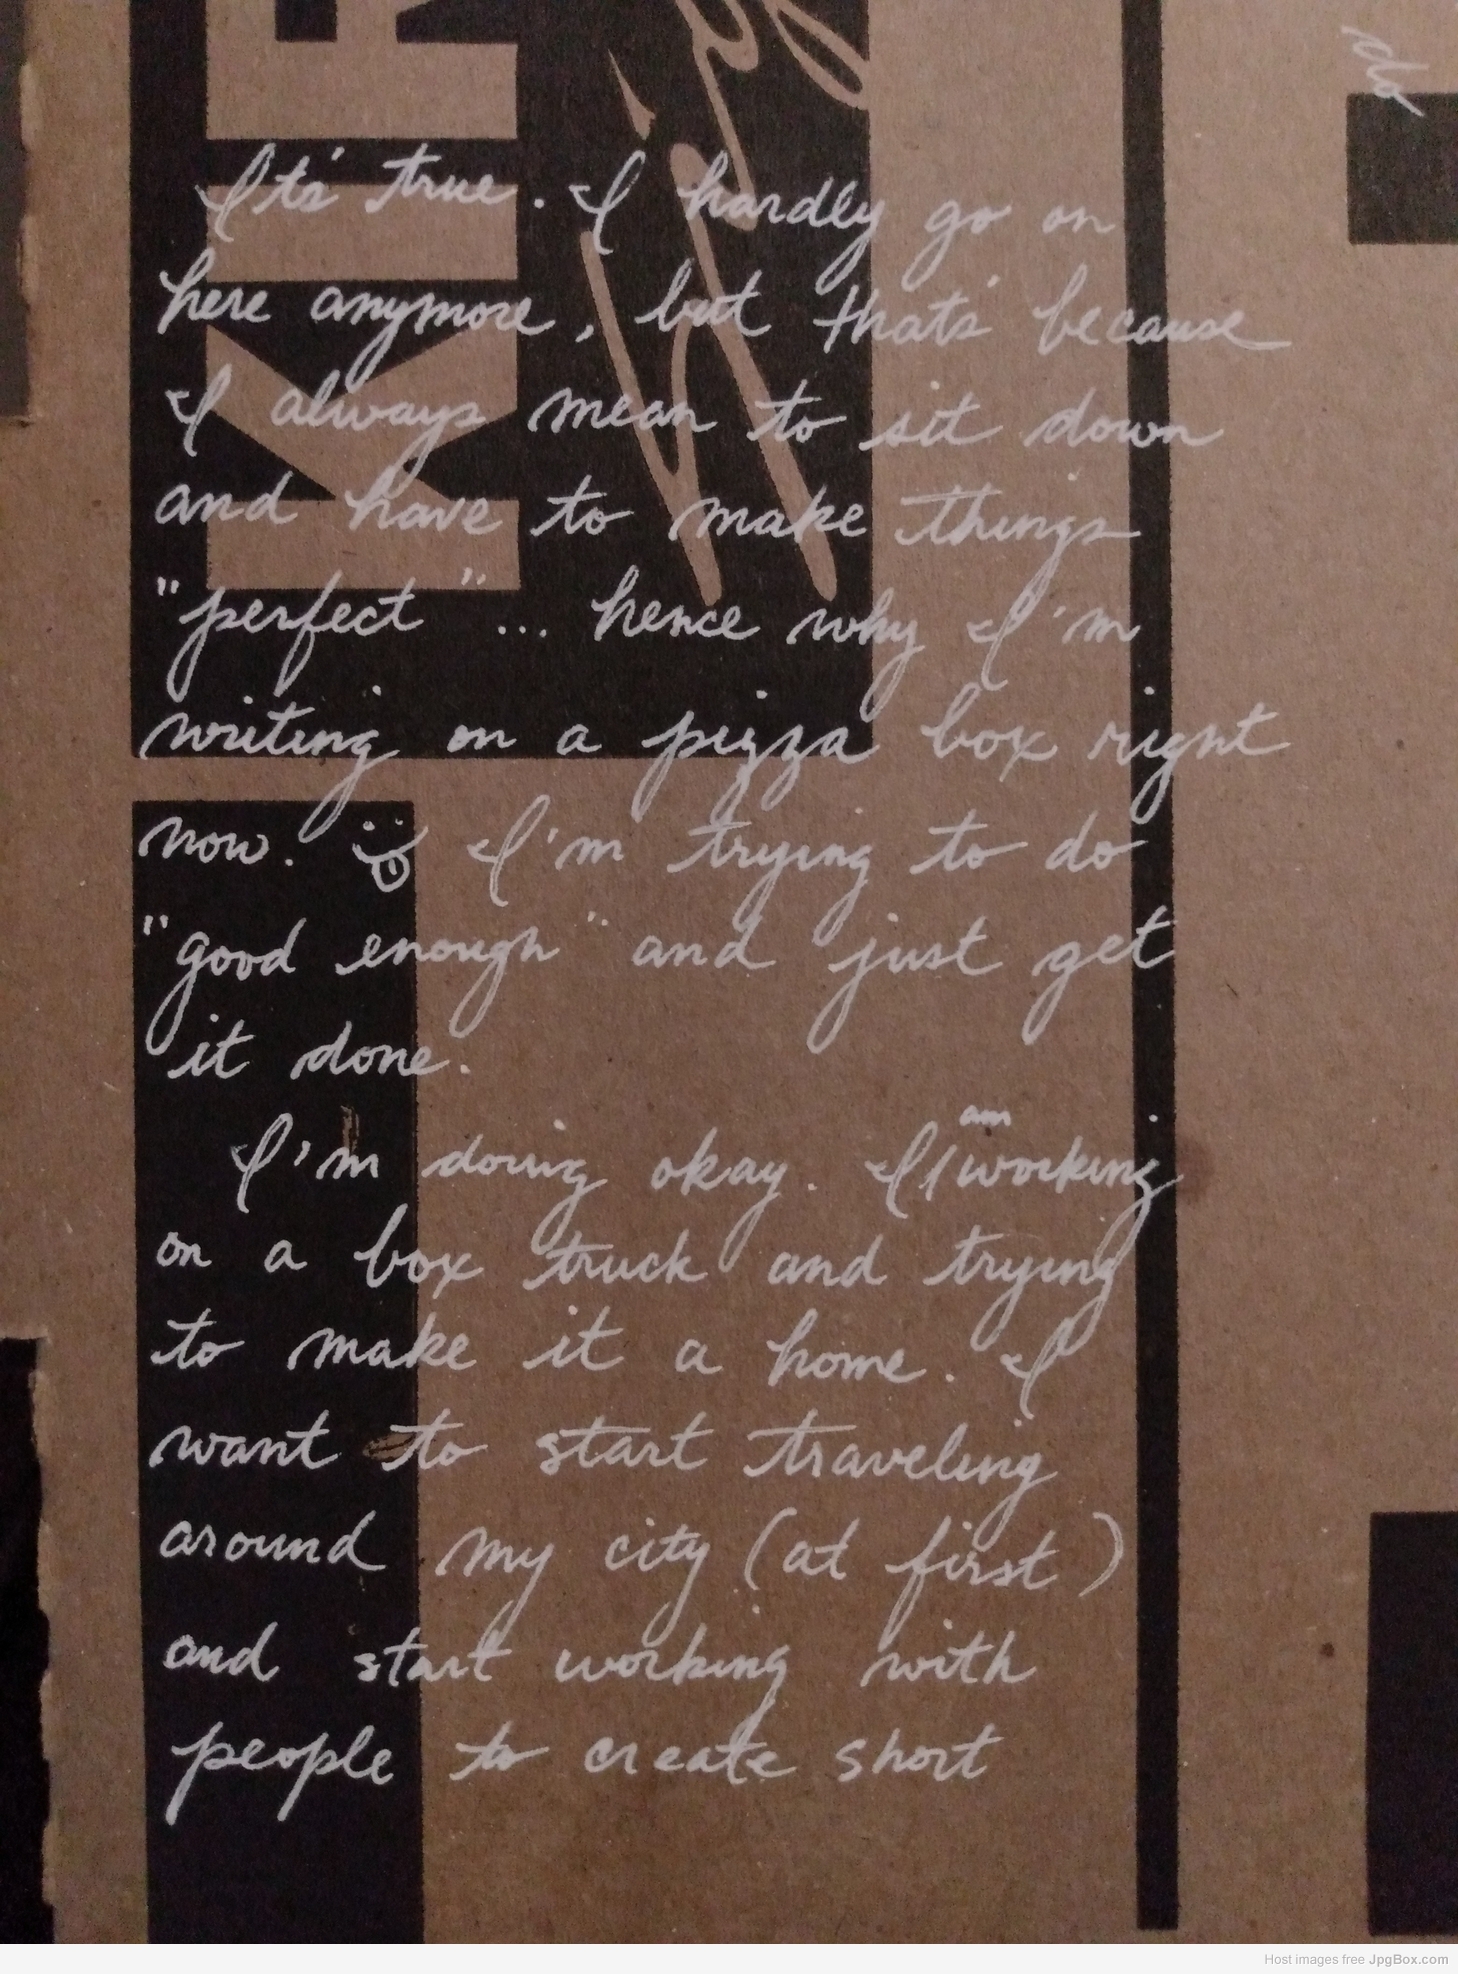 It's true. I hardly go on
here anymore, but that's because
I always mean to sit down
and have to make things
"perfect" ... hence why I'm
writing on a pizza box right
now. I'm trying to do
"good enough" and just get
it done.
I'm doing okay. I am working
on a box truck and trying
to make it a home. I
want to start traveling
around my city (at first)
and start working with
people to create short
Host images free JpgBox.com